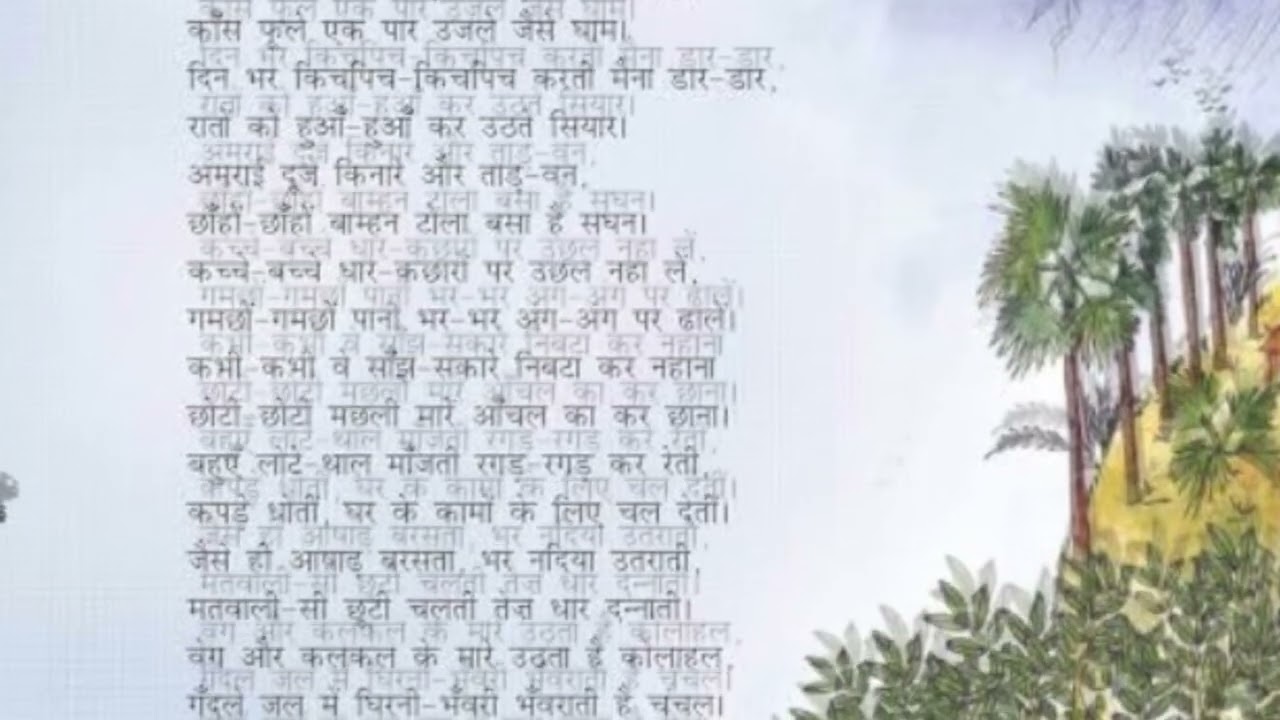 काँस फूले एक पार उजले जैसे घाम।
दिन भर किचपिच-किचपिच करती मैना डार-डार,
रातों को हुआँ-हुआँ कर उठते सियार।
अमराई दूजे किनारे और ताड़-वन,
छाँहों-छाँहों बाम्हन टोला बसा है सघन।
कच्चे-बच्चे धार-कछारों पर उछल नहा लें,
गमछों-गमछों पानी भर-भर अंग-अंग पर ढालें।
कभी-कभी वे साँझ-सकारे निबटा कर नहाना
छोटी-छोटी मछली मारें आँचल का कर छाना।
बहुएँ लोटे-थाल माँजती रगड़-रगड़ कर रेती,
कपड़े धोतीं, घर के कामों के लिए चल देतीं।
जैसे ही आषाढ़ बरसता, भर नदिया उतराती,
मतवाली-सी छूटी चलती तेज धार दन्नाती।
वेग और कलकल के मारे उठता है कोलाहल,
गँदले जल में घिरनी-भँवरी भँवराती है चंचल।